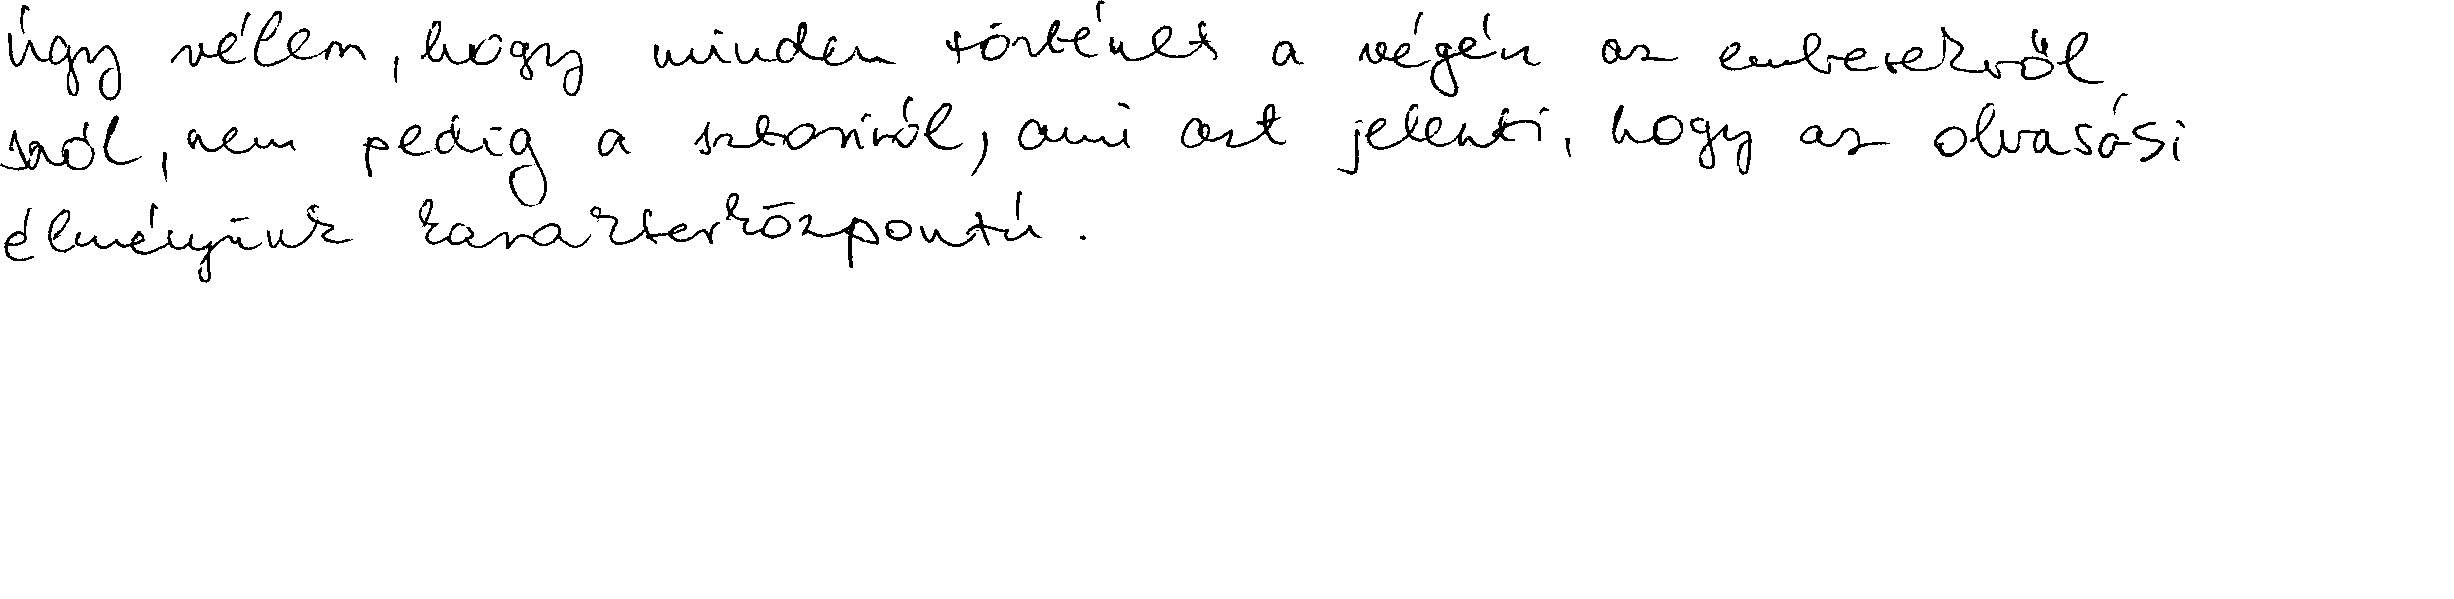 Úgy vélem, hogy minden történet a végén az emberekről
szól, nem pedig a sztoriról, ami azt jelenti, hogy az olvasási
élményünk karakterközpontú.